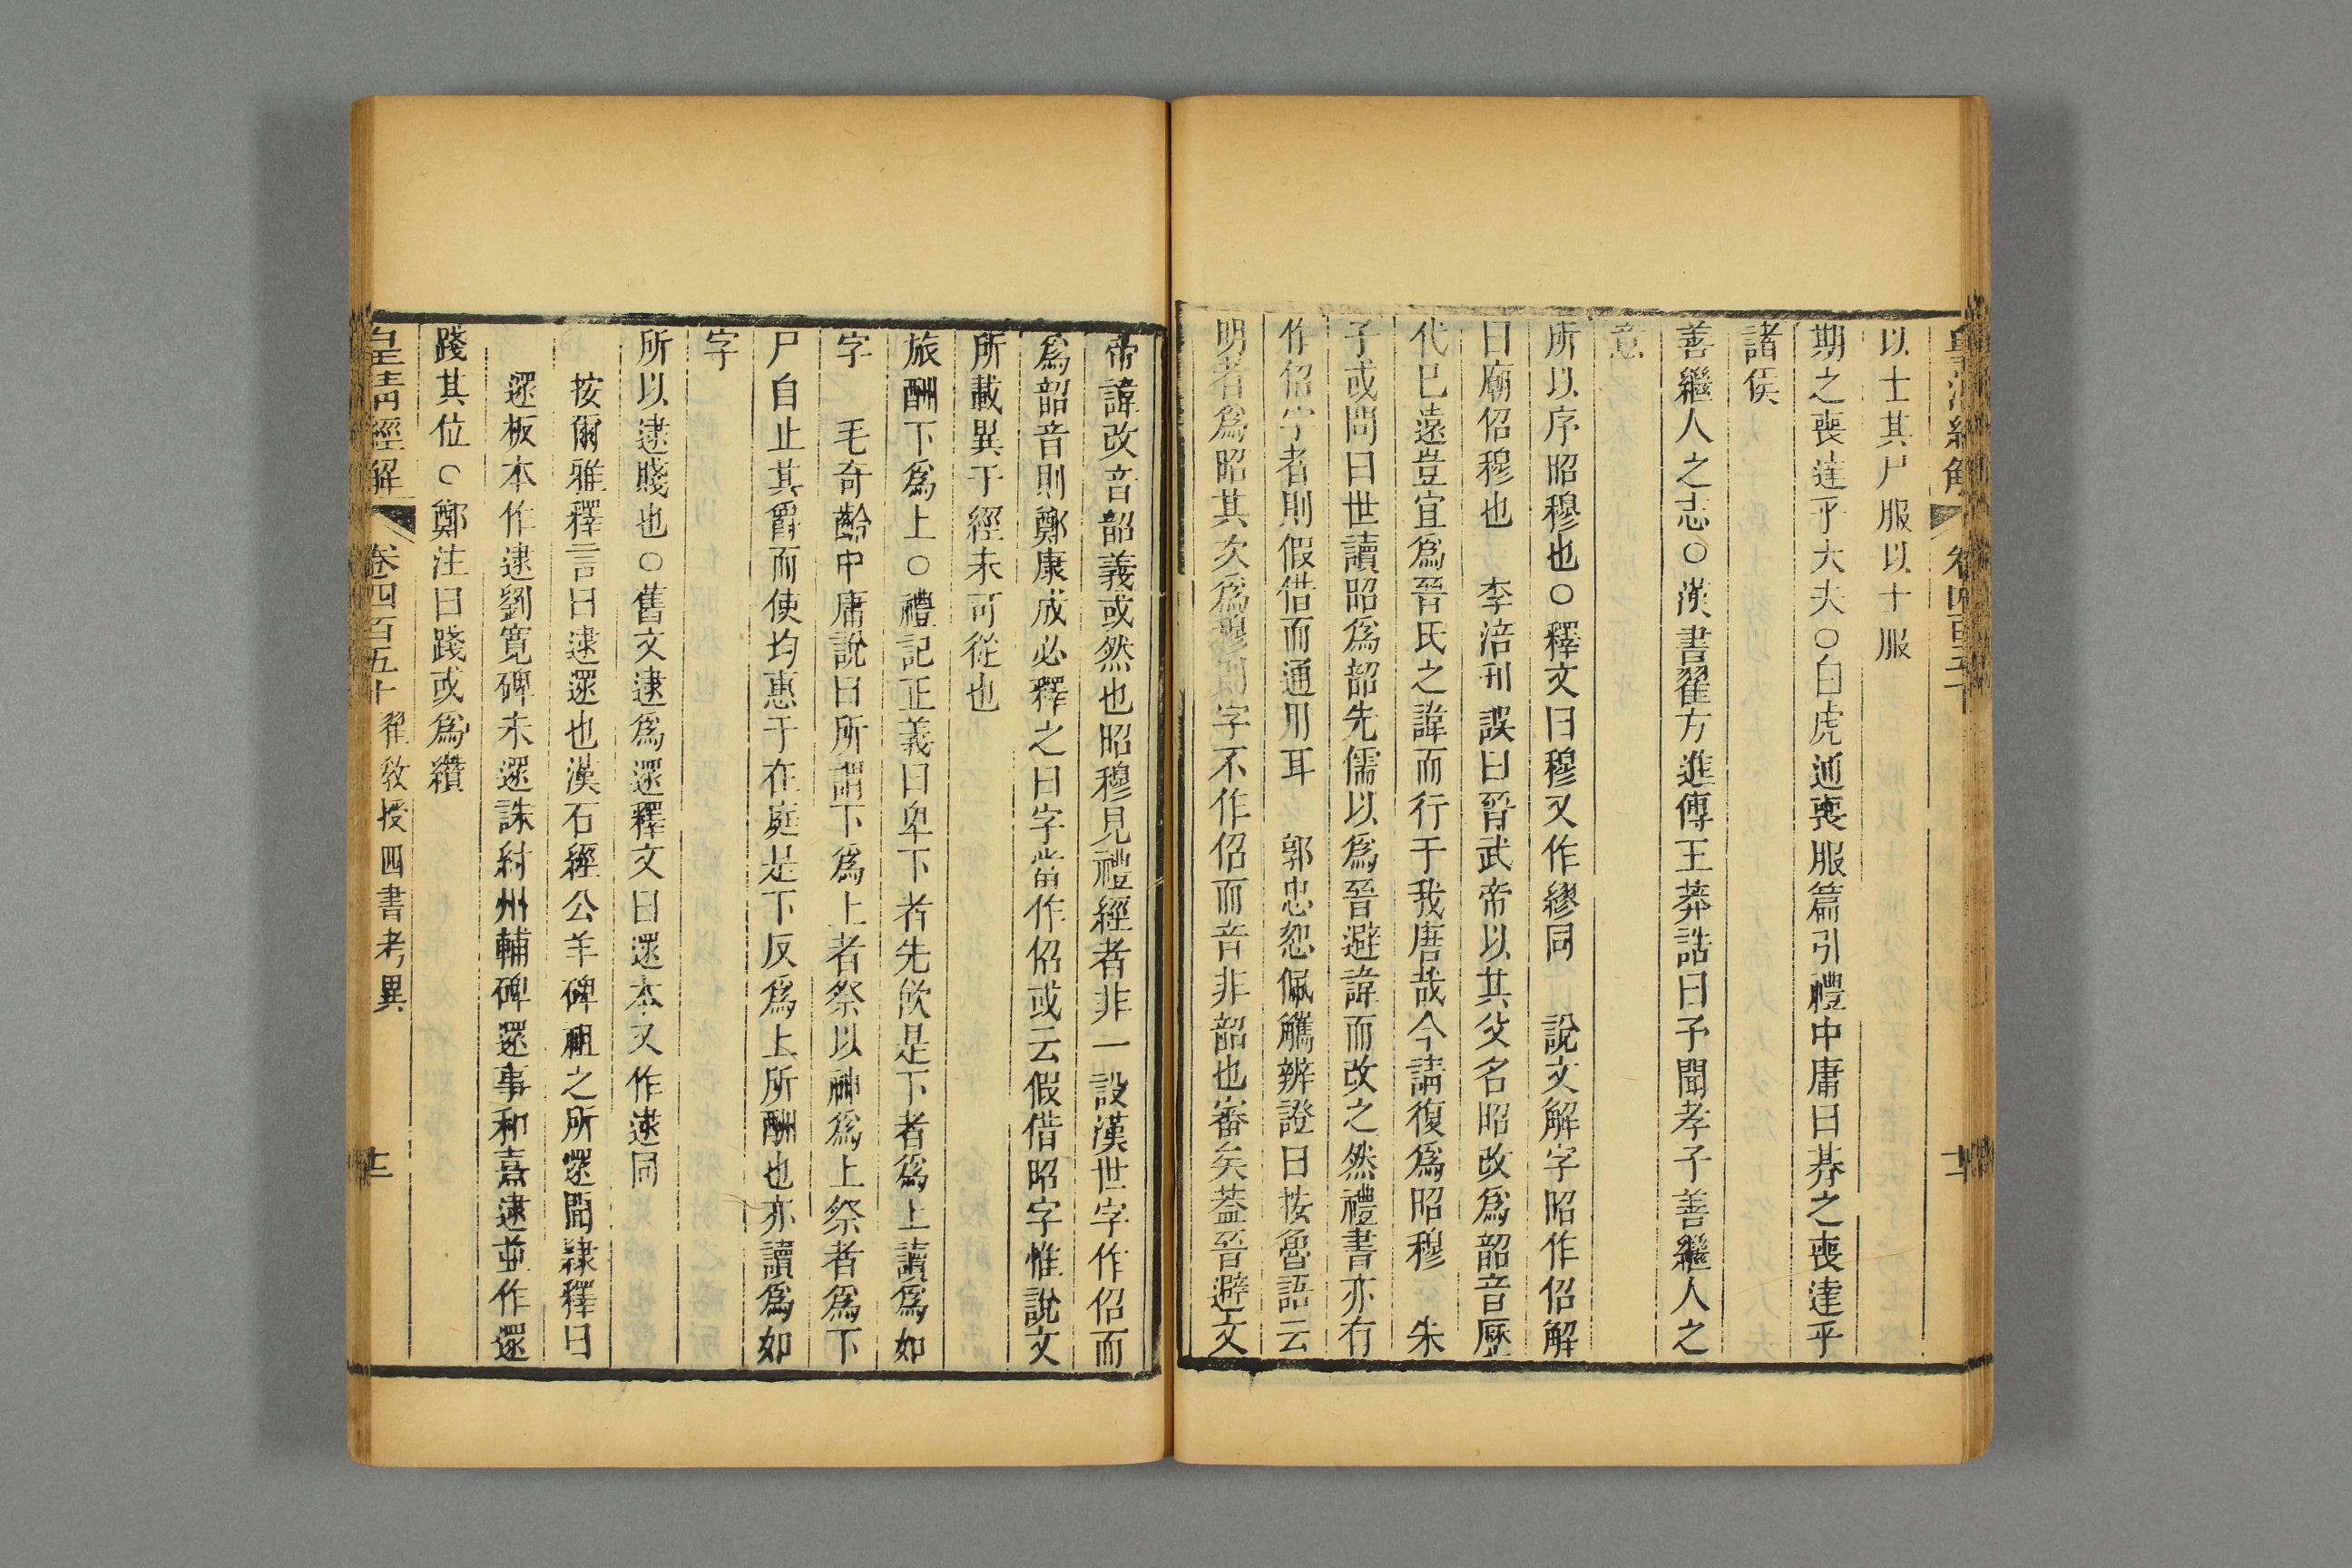 皇清經解 卷四百五十 十一
以士其尸服以士服
期之喪達乎大夫○白虎通喪服篇引禮中庸曰朞之喪達乎
諸侯
善繼人之志○漢書翟方進傳王莽誥曰予聞孝子善繼人之
意
所以序昭穆也○釋文曰穆又作繆同 說文解字昭作佋解
曰廟佋穆也 李涪刊誤曰晉武帝以其父名昭改爲韶音歷
代已遠豈宜爲晉氏之諱而行于我唐哉今請復爲昭穆 朱
子或問曰世讀昭爲韶先儒以爲晉避諱而改之然禮書亦有
作佋字者則假借而通用耳 郭忠恕佩觿辨證曰按魯語云
明者爲昭其次爲穆則字不作佋而音非韶也審矣葢晉避文
帝諱改音韶義或然也昭穆見禮經者非一設漢世字作佋而
爲韶音則鄭康成必釋之曰字當作佋或云假借昭字惟說文
所載異于經未可從也
旅酬下爲上○禮記正義曰卑下者先飮是下者爲上讀爲如
字 毛奇齡中庸說曰所謂下爲上者祭以神爲上祭者爲下
尸自止其爵而使均惠于在庭是下反爲上所酬也亦讀爲如
字
所以逮賤也○舊文逮爲遝釋文曰遝本又作逮同
按爾雅釋言曰逮遝也漢石經公羊碑祖之所遝聞隸釋曰
遝板本作逮劉寬碑未遝誅紂州輔碑遝事和熹逮並作遝
踐其位○鄭注曰踐或爲纘
皇清經解 卷四百五十 翟敎授四書考異 十二